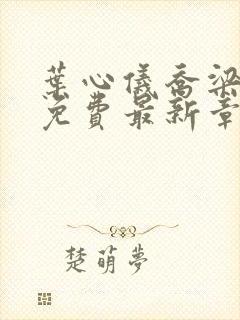 葉心儀喬梁
免費最新章
楚萌夢